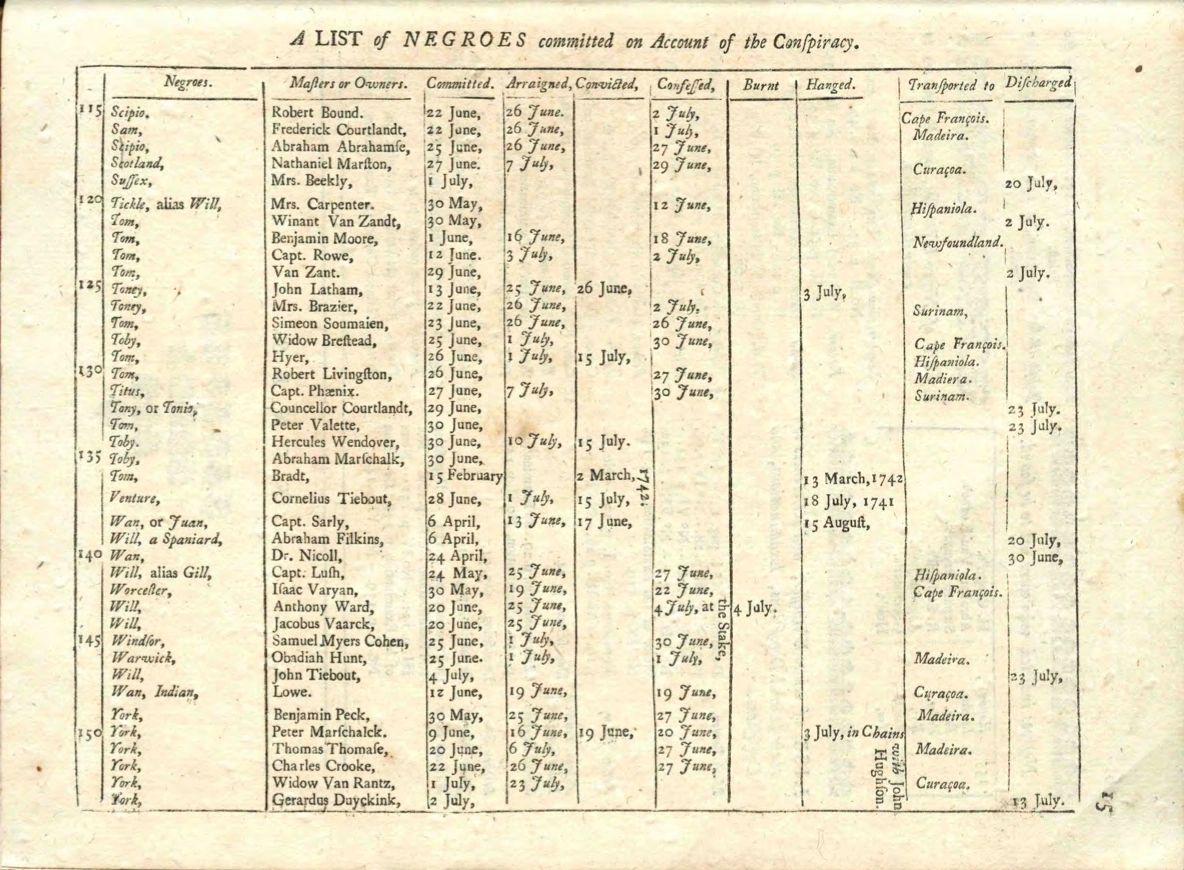 A LIST of NEGROES committed on Account of the Conſpiracy.
Negroes. Maſters or Owners. Committed. Arraigned, Convicted, Confeſſed, Burnt Hanged. Tranſported to Diſcharged
115 Scipio, Robert Bound. 22 June, 26 June. 2 July, Cape François.
Sam, Frederick Courtlandt, 22 June, 26 June, 1 July, Madeira.
Scipio, Abraham Abrahamſe, 25 June, 26 June, 27 June,
Scotland, Nathaniel Marſton, 27 June. 7 July, 29 June, Curaçoa.
Suſſex, Mrs. Beekly, 1 July, 20 July,
120 Tickle, alias Will, Mrs. Carpenter. 30 May, 12 June, Hiſpaniola.
Tom, Winant Van Zandt, 30 May, 2 July.
Tom, Benjamin Moore, 1 June, 16 June, 18 June, Newfoundland.
Tom, Capt. Rowe, 12 June. 3 July, 2 July,
Tom, Van Zant. 29 June, 2 July.
125 Toney, John Latham, 13 June, 25 June, 26 June, 3 July,
Toney, Mrs. Brazier, 22 June, 26 June, 2 July. Surinam,
Tom, Simeon Soumaien, 23 June, 26 June, 26 June,
Toby, Widow Breſtead, 25 June, 1 July, 30 June, Cape François.
Tom, Hyer, 26 June, 1 July, 15 July, Hiſpaniola.
130 Tom, Robert Livingſton, 26 June, 27 June, Madiera.
Titus, Capt. Phænix. 27 June, 7 July, 30 June, Surinam.
Tony, or Tonio, Councellor Courtlandt, 29 June, 23 July.
Tom, Peter Valette, 30 June, 23 July.
Toby. Hercules Wendover, 30 June, 10 July, 15 July.
135 Toby, Abraham Marſchalk, 30 June,
Tom, Bradt, 15 February 2 March, 1742. 13 March, 1742
Venture, Cornelius Tiebout, 28 June, 1 July, 15 July, 18 July, 1741
Wan, or Juan, Capt. Sarly, 6 April, 13 June, 17 June, 15 Auguſt,
Will, a Spaniard, Abraham Filkins, 6 April, 20 July,
140 Wan, Dr. Nicoll, 24 April, 30 June,
Will, alias Gill, Capt. Luſh, 24 May, 25 June, 27 June, Hiſpaniola.
Worceſter, Iſaac Varyan, 30 May, 19 June, 22 June, Cape François.
Will, Anthony Ward, 20 June, 25 June, 4 July, at the Stake, 4 July.
Will, Jacobus Vaarck, 20 June, 25 June,
145 Windſor, Samuel Myers Cohen, 25 June, 1 July, 30 June,
Warwick, Obadiah Hunt, 25 June. 1 July, 1 July, Madeira.
Will, John Tiebout, 4 July, 23 July,
Wan, Indian, Lowe. 12 June, 19 June, 19 June, Curaçoa.
York, Benjamin Peck, 30 May, 25 June, 27 June, Madeira.
150 York, Peter Marſchalck. 9 June, 16 June, 19 June, 20 June, 3 July, in Chains with John Hughſon.
York, Thomas Thomaſe, 20 June, 6 July, 27 June, Madeira.
York, Charles Crooke, 22 June, 26 June, 27 June,
York, Widow Van Rantz, 1 July, 23 July, Curaçoa.
York, Gerardus Duyckink, 2 July, 13 July.
15